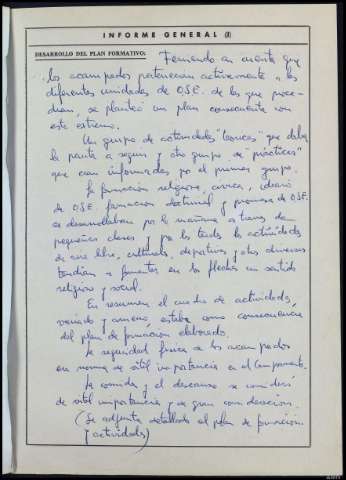 INFORME GENERAL (I)
DESARROLLO DEL PLAN FORMATIVO:
Teniendo en cuenta que
los acampados pertenecían activamente a las
diferentes unidades de O.J.E. de las que proce-
dían, se planteó un plan consecuente con
este extremo.
Un grupo de actividades "teóricas" que daba
la pauta a seguir y otro grupo de "prácticas"
que eran informadas por el primer grupo.
La formación religiosa, cívica, ideario
de O.J.E. formación doctrinal y promesa de O.J.E.
se desarrollaban por la mañana a través de
pequeñas clases y por la tarde las actividades
de aire libre, culturales, deportivas y otras diversas
tendían a fomentar en los flechas un sentido
religioso y social.
En resumen el cuadro de actividades,
variado y ameno, estaba como consecuencia
del plan de formación elaborado.
La seguridad física de los acampados
era norma de vital importancia en el Campamento.
La comida y el descanso se consideró
de vital importancia y de gran consideración.
(Se adjunta detallado el plan de formación
y actividades)